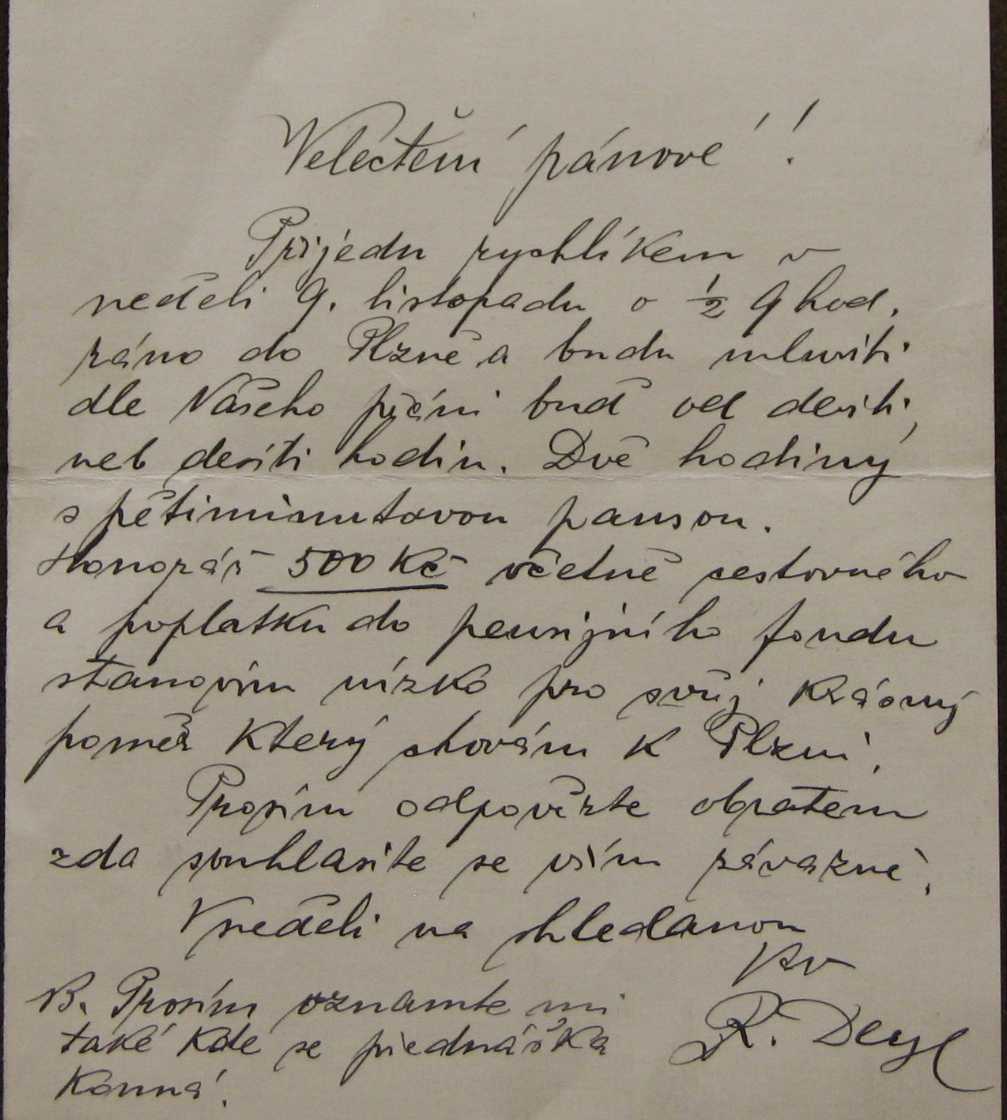 Velectění pánové!
Přijedu rychlíkem v
neděli 9. listopadu o ½ 9 hod.
ráno do Plzně a budu mluviti
dle Vašeho přání buď od devíti,
neb desíti hodin. Dvě hodiny
s pětiminutovou pausou.
Honorář 500 Kč včetně cestovného
a poplatku do pensijního fondu
stanovím nízko pro svůj krásný
poměr který chovám k Plzni.
Prosím odpovězte obratem
zda souhlasíte se vším závazně.
V neděli na shledanou
R. Deyl
B. Prosím oznamte mi
také kde se přednáška
koná!